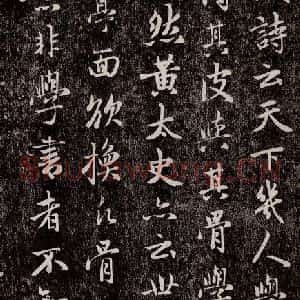 詩云天下幾人學
得其皮與其骨學
然黃太史亦云世
亭面欲換凡骨
非學書者不